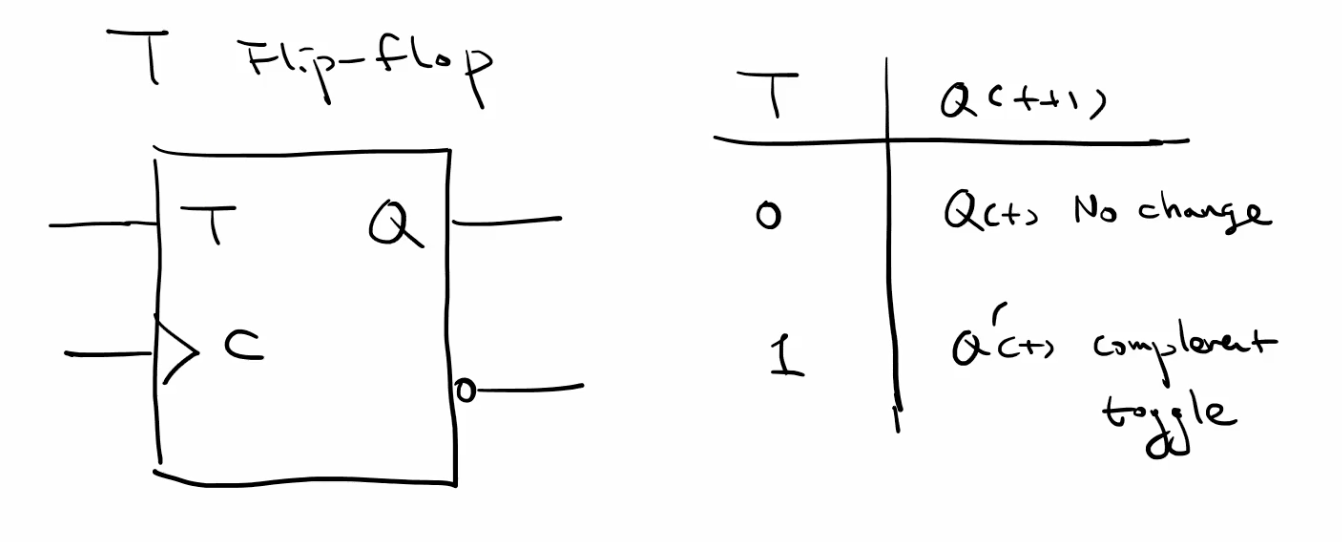 T Flip-flop
T Q
C
T Q(t+1)
0 Q(t) No change
1 Q'(t) complement
toggle